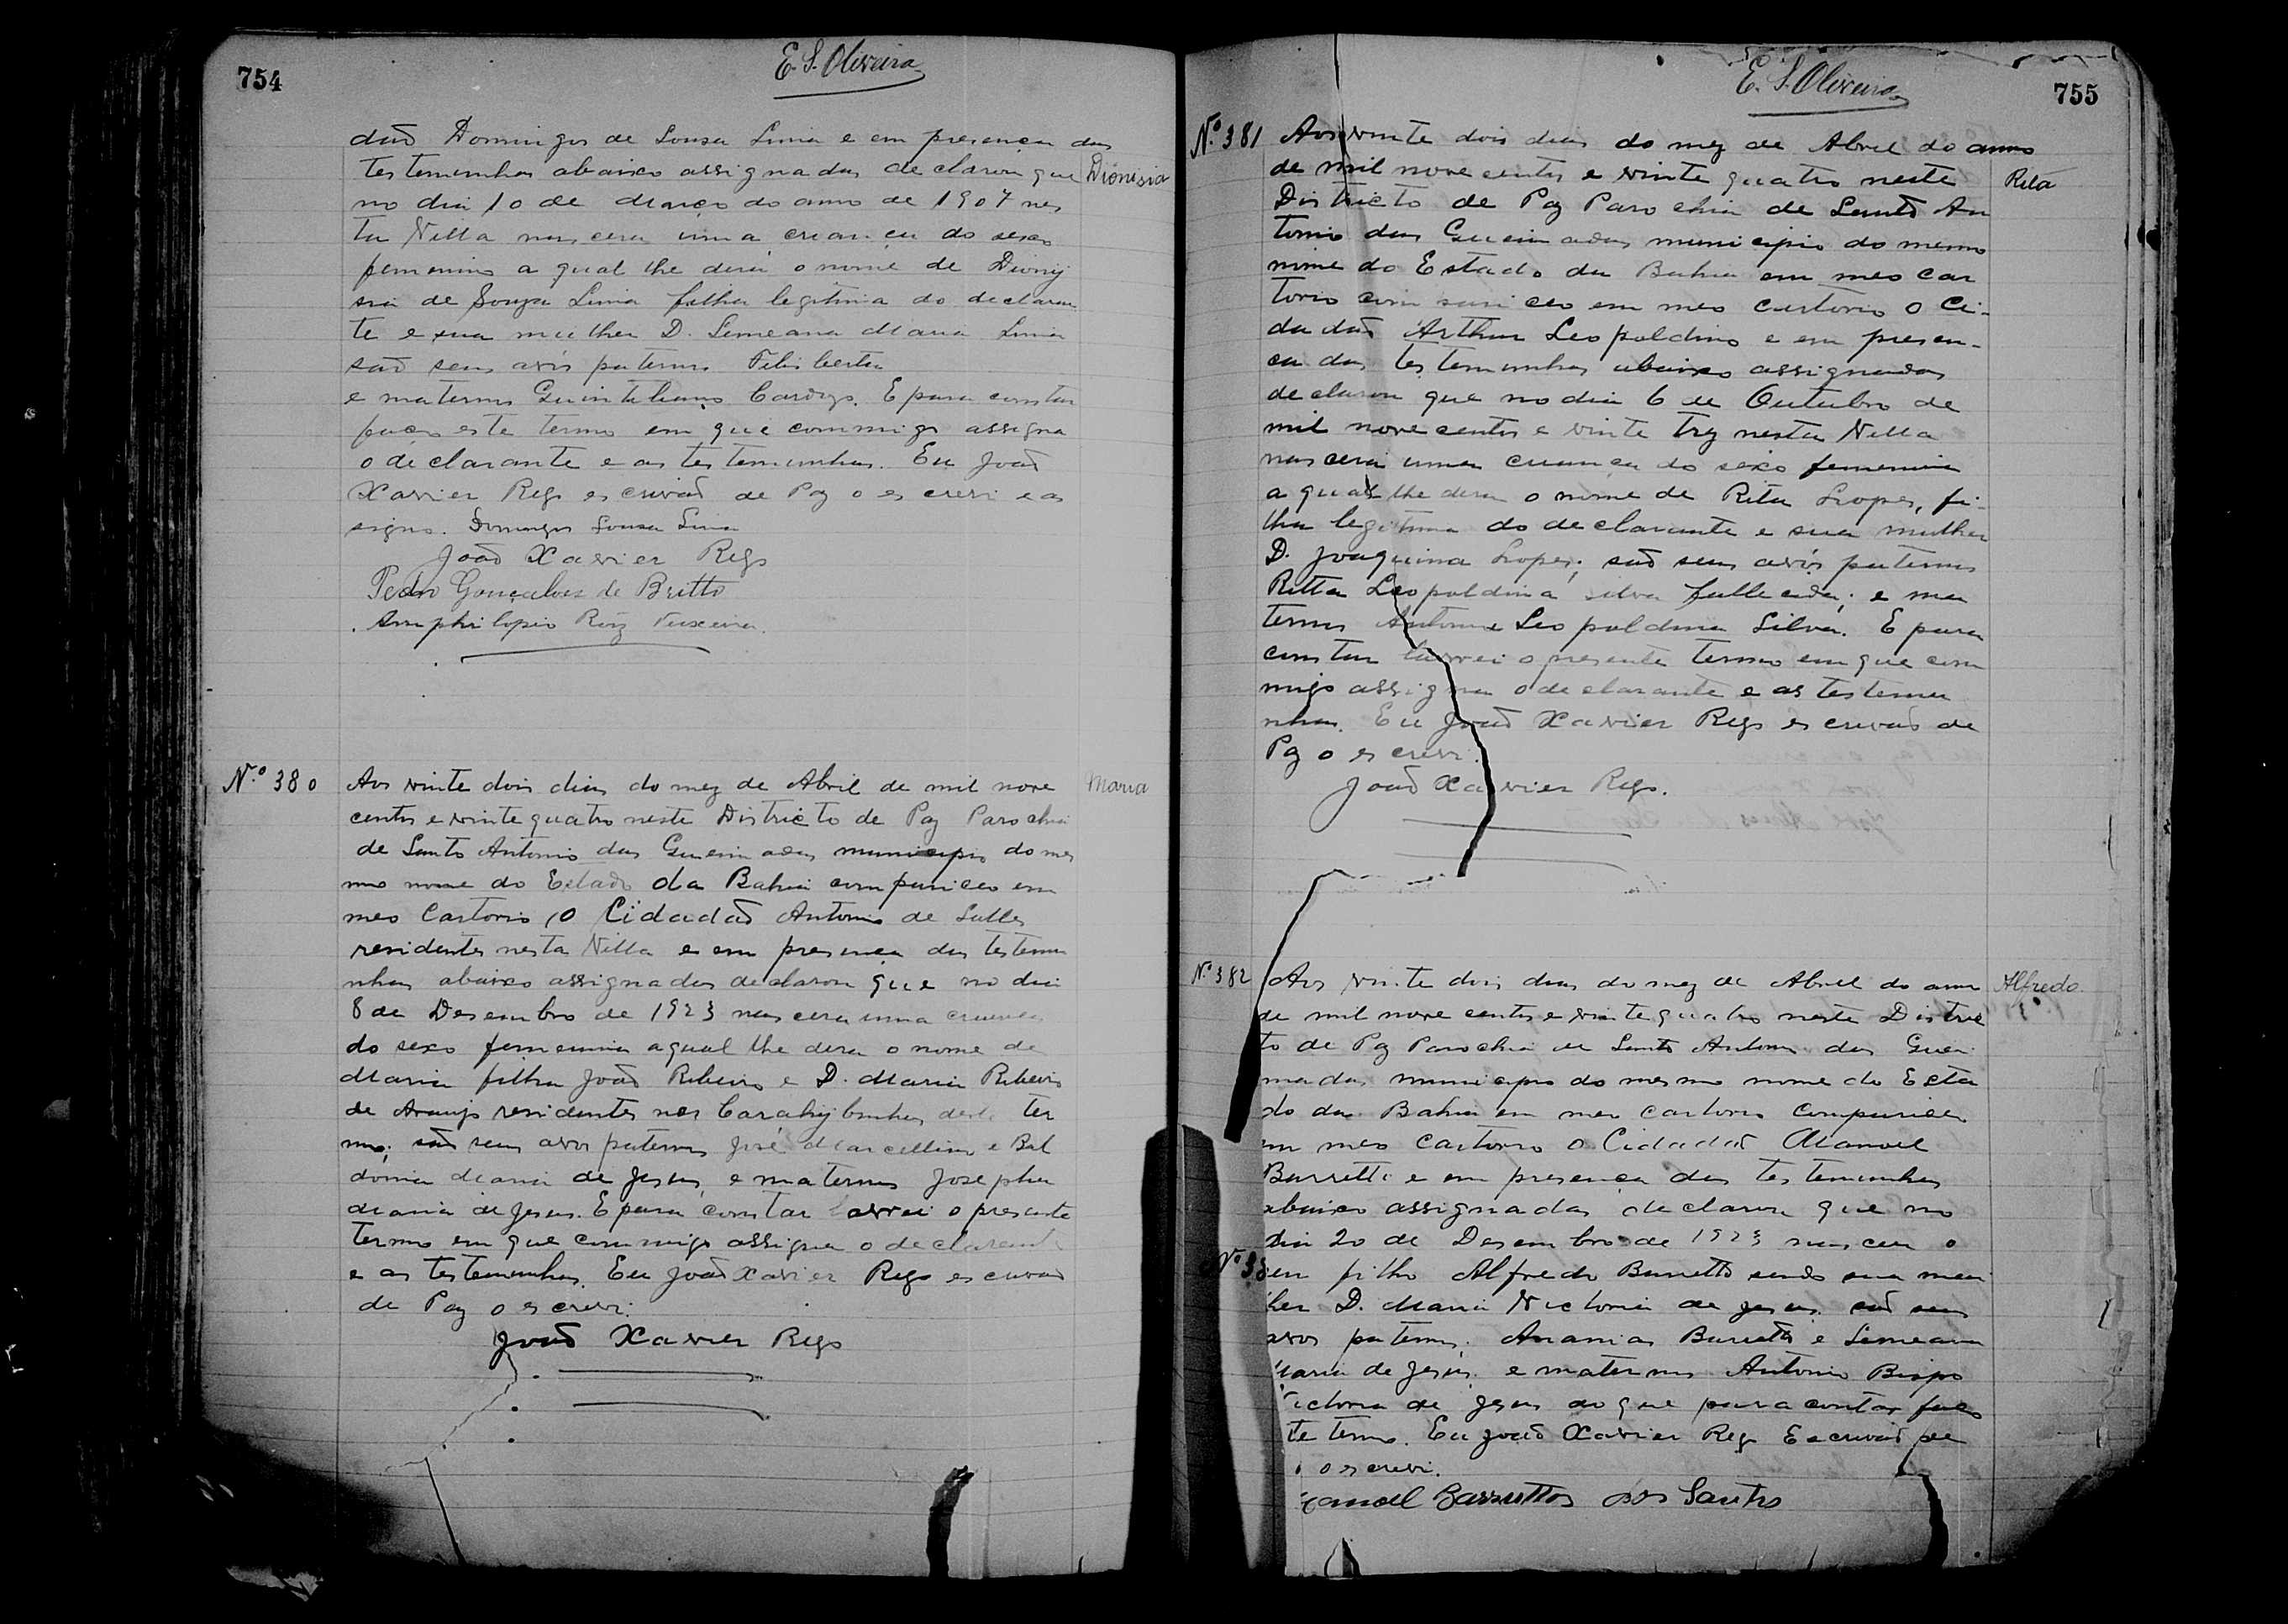 754
E. S. Oliveira
dão Domingos de Sousa Lima e em presença das
testemunhas abaixo assignadas declarou que
Dionisia
no dia 10 de Março do anno de 1907 nes
ta Villa nascera uma creança do sexo
feminino a qual lhe dera o nome de Dionij
sia de Souza Lima filha legitima do declaran
te e sua mulher D. Simeana Maria Lima
são seus avós paternos Felisberta
e maternos Quintiliano Cardozo. E para constar
faço este termo em que commigo assigna
o declarante e as testemunhas. Eu João
Xavier Rego escrivão de Paz o escrevi e as
signo. Domingos Sousa Lima
João Xavier Rego
Pedro Gonçalves de Britto
Amphilopio Roiz Teixeira.
Nº 380
Aos vinte dois dias do mez de Abril de mil nove
Maria
centos e vinte quatro neste Districto de Paz Parochia
de Santo Antonio das Queimadas municipio do mes
mo nome do Estado da Bahia compariceo em
meo Cartorio, o Cidadão Antonio de Salles
residentes nesta Villa e em presença das testemu
nhas abaixo assignadas declarou que no dia
8 de Desembro de 1923 nascera uma creança
do sexo femenino a qual lhe dera o nome de
Maria filha João Ribeiro e D. Maria Ribeiro
de Araujo residentes nos deste ter
mo; são seus avos paternos José Marcellino e Bal
doina Maria de Jesus, e maternos Josepha
Maria de Jesus. E para constar larvei o presente
termo em que commigo assigna o declarante
e as testemunhas. Eu João Xavier Rego escrivão
de Paz o escrevi.
João Xavier Rego
E. S. Oliveira
755
Nº 381
Aos vinte dois dias do mez de Abril do anno
de mil nove centos e vinte quatro neste
Rita
Districto de Paz Parochia de Santo An
tonio das Queimadas municipio do mesmo
nome do Estado da Bahia em meo Car
torio compariceo em meo cartorio o Ci-
dadão Arthur Leopoldino e em presen-
ca das testemunhas abaixo assignadas
declarou que no dia 6 de Outubro de
mil nove centos e vinte trez nesta Villa
nascera uma creança do sexo femenino
a qual lhe dera o nome de Rita Lopes, fi-
lha legitima do declarante e sua mulher
D. Joaquina Lopes; são seus avós paternos
Ritta Leopoldina Silva fallecida; e ma
ternos Antonia Leopoldina Silva. E para
constar larvei o presente termo em que com
migo assigna o declarante e as testemu
nhas. Eu João Xavier Rego escrivão de
Paz o escrevi.
João Xavier Rego.
Nº 382
Aos vinte dois dias do mez de Abril do anno
Alfredo.
de mil nove centos e vinte quatro neste Distric
to de Paz Parochia de Santo Antonio das Quei
madas municipio do mesmo nome do Esta
do da Bahia em meu cartorio Compariceo
em meo Cartorio o Cidadão Manoel
Barretto e em presença das testemunhas
abaixo assignadas declarou que no
dia 20 de Desembro de 1923 nasceu o
Nº 3
seu filho Alfredo Barretto sendo sua mu
lher D. Maria Victoria de Jesus. são seus
avos paternos; Ananias Barretto e Simeana
Maria de Jesus. e maternos Antonio Bispo
Victoria de Jesus do que para contar faço
te termo. Eu João Xavier Rego Escrivão de
o escrevi.
anoel Barrettos dos Santos